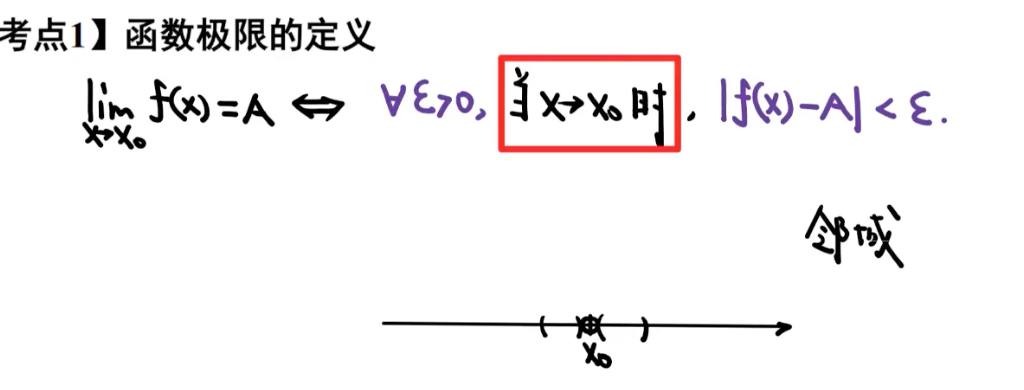 考点1】函数极限的定义
lim f(x) = A ⇔ ∀ε>0, 当 x→x₀ 时, |f(x)-A| < ε.
x→x₀
邻域
( )( )
x₀